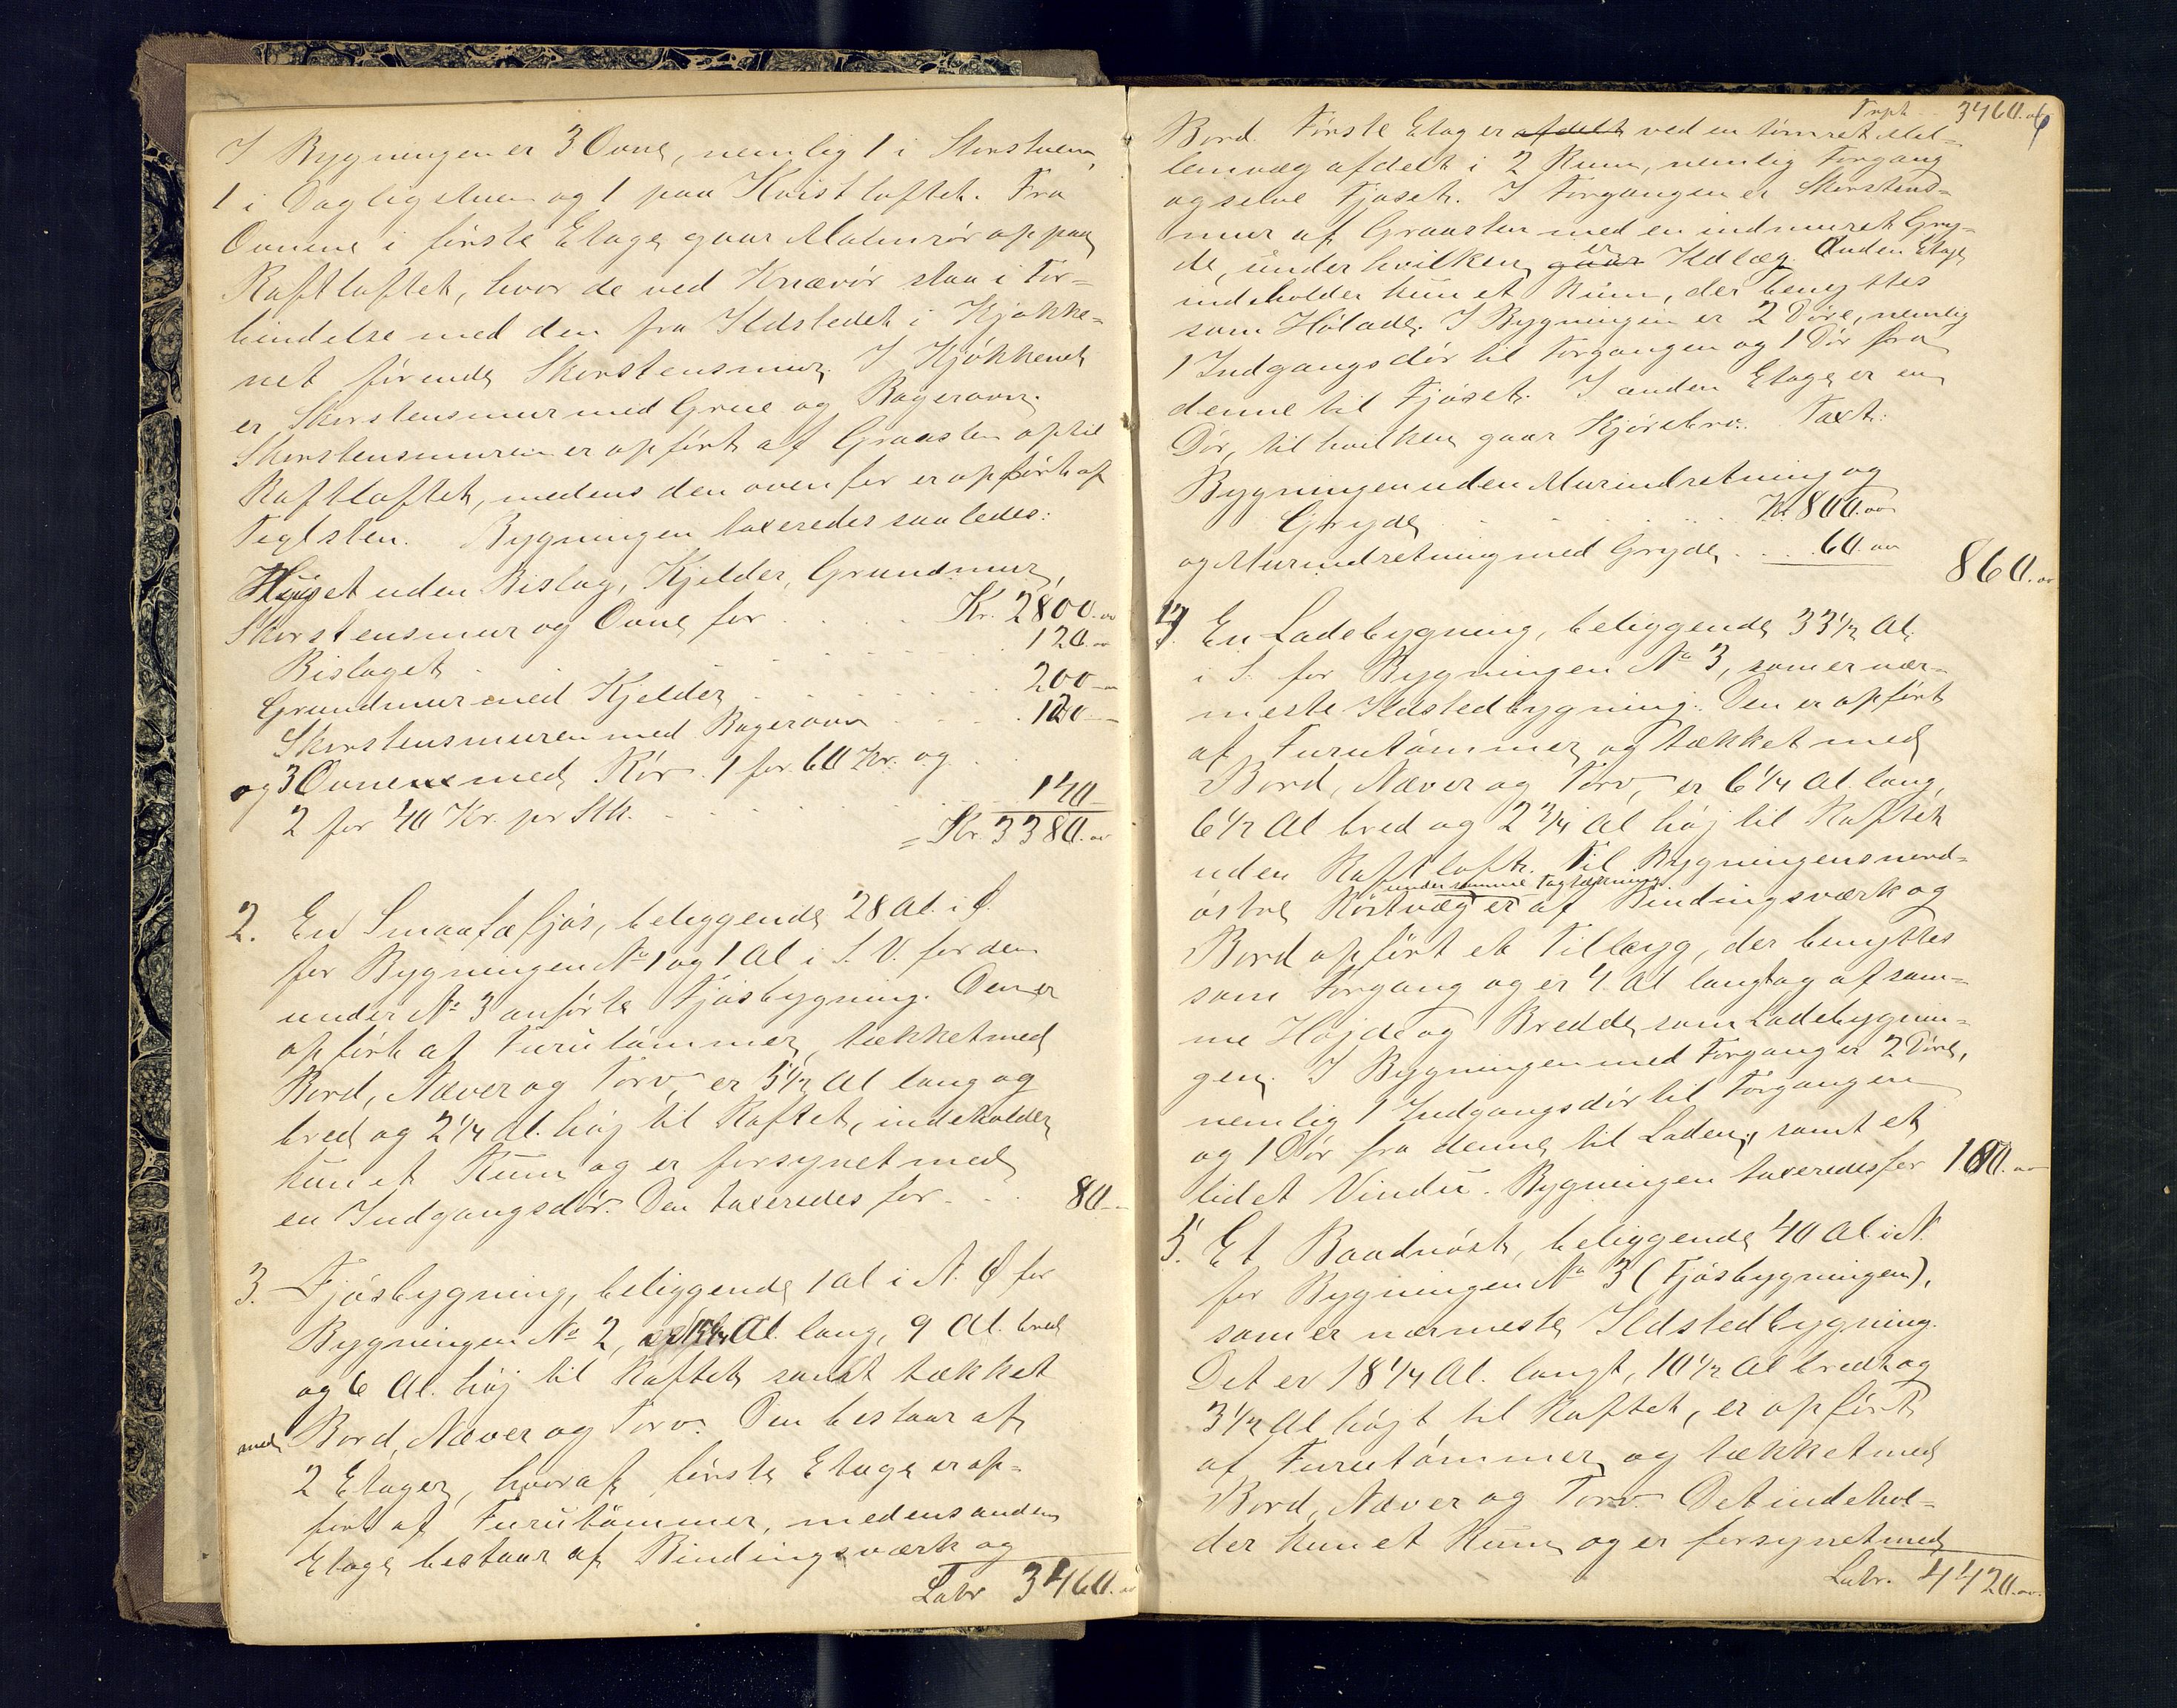 I Bygningen er 3 Ovne, nemlig 1 i Storstuen,
1 i Dagligstuen og 1 paa Kvistloftet. Fra
Ovnene i første Etage gaar Malmrør op paa
Raftloftet, hvor de ved Knærør staa i For-
bindelse med den fra Ildstedet i Kjøkke-
net førende Skorstensmur. I Kjøkkenet
er Skorstensmur med Grue og Bagerovn.
Skorstensmuren er opført af Graasten op til
Raftloftet, medens den ovenfor er opført af
Teglsten. Bygningen taxeredes saaledes:
Huset uden Bislag, Kjelder, Grundmur,
Skorstensmur og Ovne for . . . . Kr. 2800.00
Bislaget . . . . 120.00
Grundmur med Kjelder . . . . 200 —
Skorstensmuren med Bagerovn . . . . 120 —
og 3 Ovne med Rør. 1 for 60 Kr. og
2 for 40 Kr. pr Stk. . . . . 140 —
= Kr. 3380.00
2. En Smaafæfjøs, beliggende 28 Al. i Ø.
for Bygningen No 1 og 1 Al i S. V. for den
under No 3 anførte Fjøsbygning. Den er
opført af Furutømmer, tækket med
Bord, Næver og Torv, er 5 1/2 Al lang og
bred og 2 1/4 Al. høj til Raftet, indeholder
kun et Rum og er forsynet med
en Indgangsdør. Den taxeredes for . . . 80 —
3. Fjøsbygning, beliggende 1 Al i N. Ø for
Bygningen No 2, er Al. lang, 9 Al. bred
og 6 Al. høj til Raftet samt tækket
med Bord, Næver og Torv. Den bestaar af
2 Etager, hvoraf første Etage er op-
ført af Furutømmer, medens anden
Etage bestaar af Bindingsværk og
Latr 3460.00
Trpt. 3460.00 6
Bord. Første Etage er afdelt ved en tømret Mel-
lemvæg afdelt i 2 Rum, nemlig Forgang
og selve Fjøset. I Forgangen er Skorstens-
mur af Graasten med en indmuret Gry-
de, under hvilken gaar er Ildlæg. Anden Etage
indeholder kun et Rum, der benyttes
som Hølade. I Bygningen er 2 Døre, nemlig
1 Indgangsdør til Forgangen og 1 Dør fra
denne til Fjøset. I anden Etage er en
Dør, til hvilken gaar Kjørebro. Taxt:
Bygningen uden Murindretning og
Gryde . . . . Kr 800.00
og Murindretning med Gryde . . . 60.00 860.00
4. En Ladebygning, beliggende 33 1/2 Al.
i S. for Bygningen No 3, som er nær-
meste Ildstedbygning. Den er opført
af Furutømmer og tækket med
Bord, Næver og Torv, er 6 1/4 Al. lang,
6 1/2 Al bred og 2 3/4 Al høj til Raftet
uden Raftloft. Til Bygningens nord-
østre Kortvæg er under samme Tagtækning af Bindingsværk og
Bord opført et Tilbyg, der benyttes
som Forgang og er 4 Al langt og af sam-
me Højde og Bredde som Ladebygnin-
gen. I Bygningen med Forgang er 2 Døre,
nemlig 1 Indgangsdør til Forgangen
og 1 Dør fra denne til Laden, samt et
lidet Vindu. Bygningen taxeredes for 100.00
5. Et Baadnøst, beliggende 40 Al i N.
for Bygningen No 3 (Fjøsbygningen),
som er nærmeste Ildstedbygning.
Det er 18 1/4 Al. langt, 10 1/2 Al bredt og
3 1/2 Al højt til Raftet, er opført
af Furutømmer og tækket med
Bord, Næver og Torv. Det indehol-
der kun et Rum og er forsynet med
Latr. 4420.00